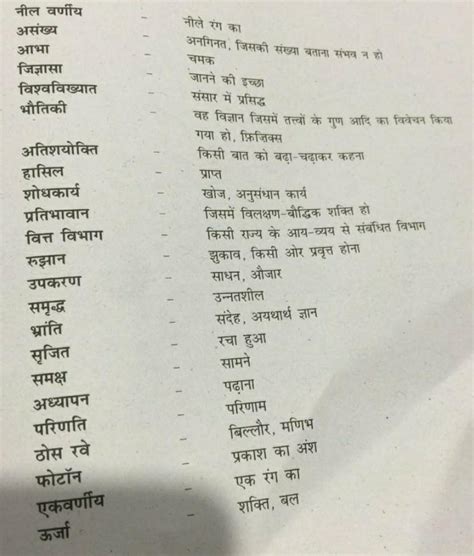 नील वर्णीय - नीले रंग का
असंख्य - अनगिनत, जिसकी संख्या बताना संभव न हो
आभा - चमक
जिज्ञासा - जानने की इच्छा
विश्वविख्यात - संसार में प्रसिद्ध
भौतिकी - वह विज्ञान जिसमें तत्त्वों के गुण आदि का विवेचन किया
गया हो, फ़िज़िक्स
अतिशयोक्ति - किसी बात को बढ़ा-चढ़ाकर कहना
हासिल - प्राप्त
शोधकार्य - खोज, अनुसंधान कार्य
प्रतिभावान - जिसमें विलक्षण-बौद्धिक शक्ति हो
वित्त विभाग - किसी राज्य के आय-व्यय से संबंधित विभाग
रुझान - झुकाव, किसी ओर प्रवृत्त होना
उपकरण - साधन, औजार
समृद्ध - उन्नतशील
भ्रांति - संदेह, अयथार्थ ज्ञान
सृजित - रचा हुआ
समक्ष - सामने
अध्यापन - पढ़ाना
परिणति - परिणाम
ठोस रवे - बिल्लौर, मणिभ
फोटॉन - प्रकाश का अंश
एकवर्णीय - एक रंग का
ऊर्जा - शक्ति, बल